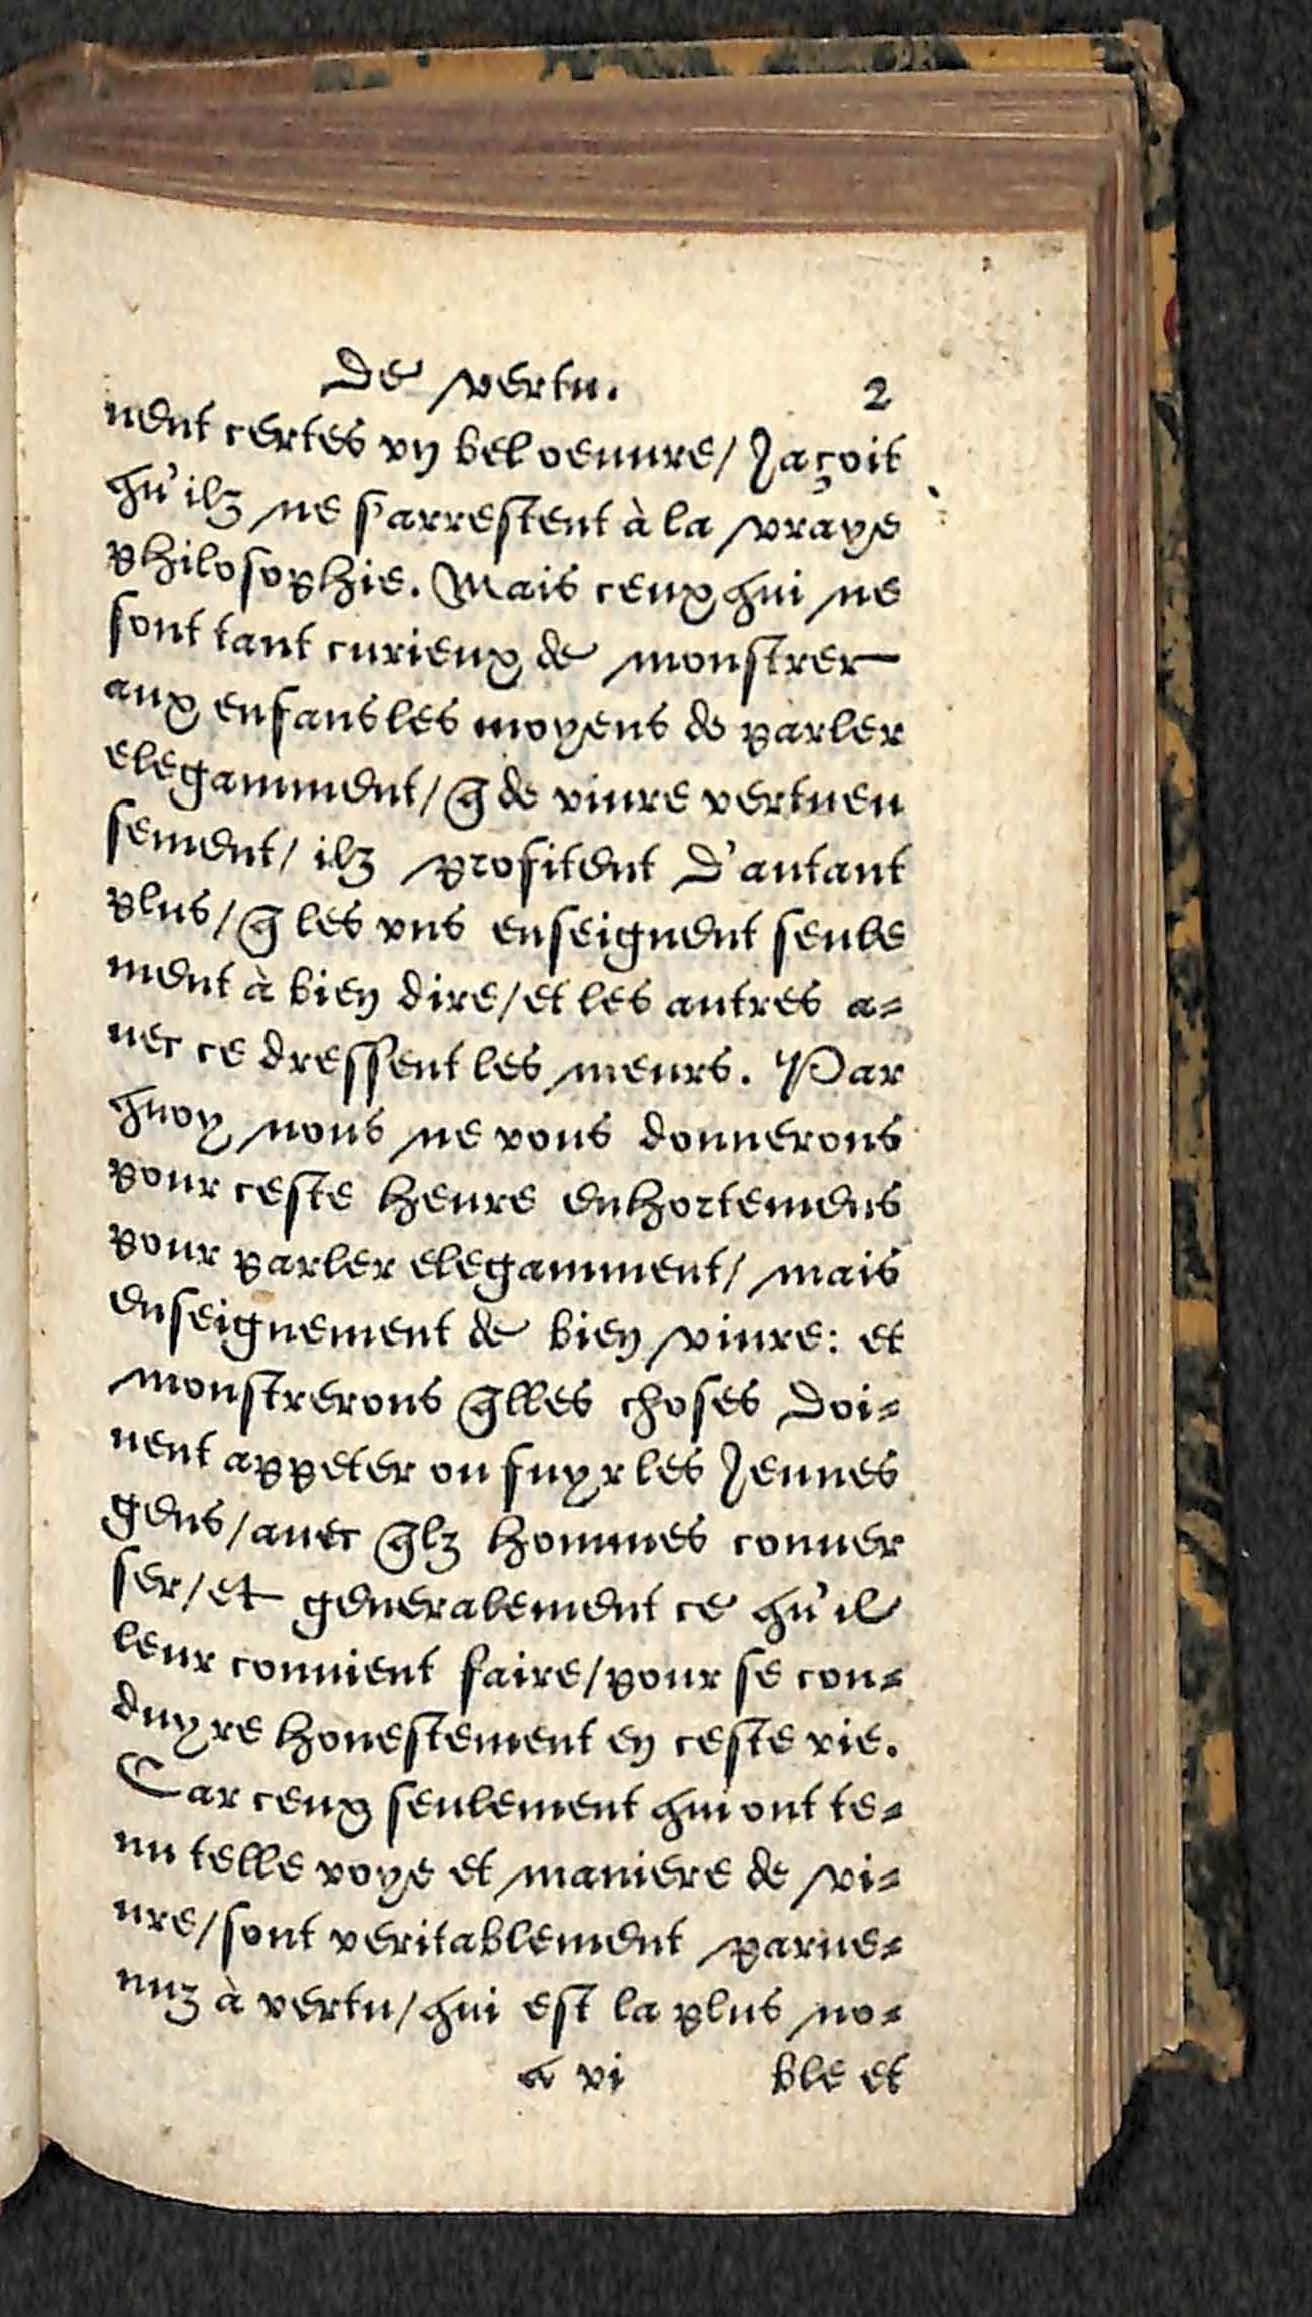 De vertu. 2
uent certes vn bel oeuure/ Jaçoit
qu'ilz ne s'arrestent à la vraye
philosophie. Mais ceux qui ne
sont tant curieux de monstrer
aux enfans les moyens de parler
elegamment/ q̃ de viure vertueu
sement/ ilz profitent d'autant
plus/ q̃ les vns enseignent seule
ment à bien dire/ et les autres a-
uec ce dressent les meurs. Par
quoy nous ne vous donnerons
pour ceste heure enhortemens
pour parler elegamment/ mais
enseignement de bien viure: et
monstrerons q̃lles choses doi-
uent appeter ou fuyr les Jeunes
gens/ auec q̃lz hommes conuer
ser/ et generalement ce qu'il
leur conuient faire/ pour se con-
duyre honestement en ceste vie.
Car ceux seulement qui ont te-
nu telle voye et maniere de vi-
ure/ sont veritablement parue-
nuz à vertu/ qui est la plus no-
a vi ble et